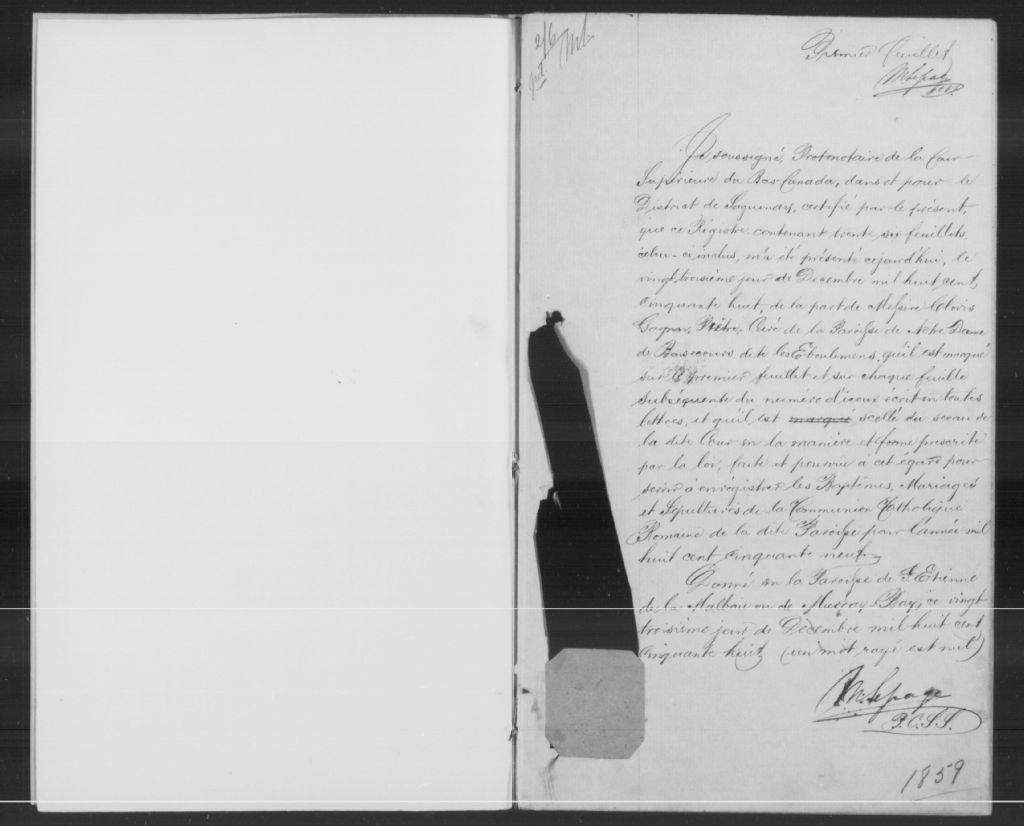 216
Premier feuillet
MLepage
P.C.S.
Je soussigné, Protonotaire de la Cour
Supérieure du Bas-Canada, dans et pour le
District de Saguenay, certifié par le présent,
que ce Régistre contenant trente six feuillets,
celui-ci inclus, m'a été présenté cejourd'hui, le
vingt troisième jour de Decembre mil huit cent
cinquante huit, de la part de Messire Clovis
Gagnon, Prêtre, Curé de la Paroisse de Notre Dame
de Bonsecours dite les Eboulemens, qu'il est marqué
sur le premier feuillet et sur chaque feuille
subséquente du numéro d'iceux écrit en toutes
lettres, et qu'il est marqué scellé du sceau de
la dite Cour en la manière et forme prescrite
par la loi, faite et pourvue à cet égard pour
servir à enrégistrer les Baptêmes, Mariages
et Sépultures de la Communion Catholique
Romaine de la dite Paroisse pour l'année mil
huit cent cinquante neuf.
Donné en la Paroisse de St. Etienne
de la Malbaie ou de Murray-Bay, ce vingt
troisième jour de Décembre mil huit cent
cinquante huit (un mot rayé est nul)
MLepage
P.C.S.S.
1859